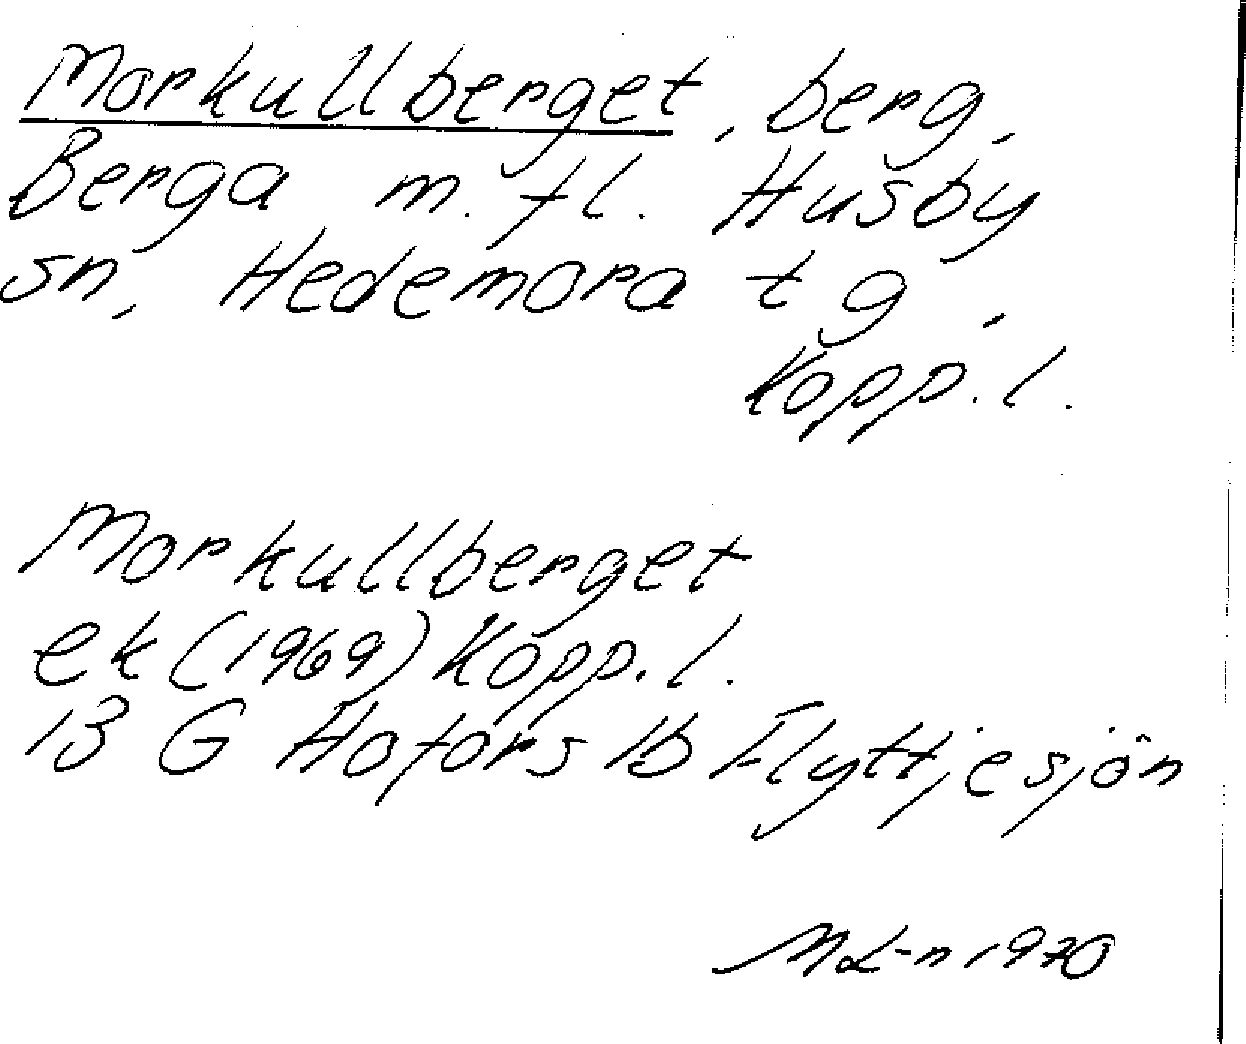 Morkullberget, berg,
Berga m. fl. Husby
sn, Hedemora tg,
Kopp. l.
Morkullberget
ek (1969) Kopp. l.
13 G Hofors 1b Flyttjesjön
ML-n 1970